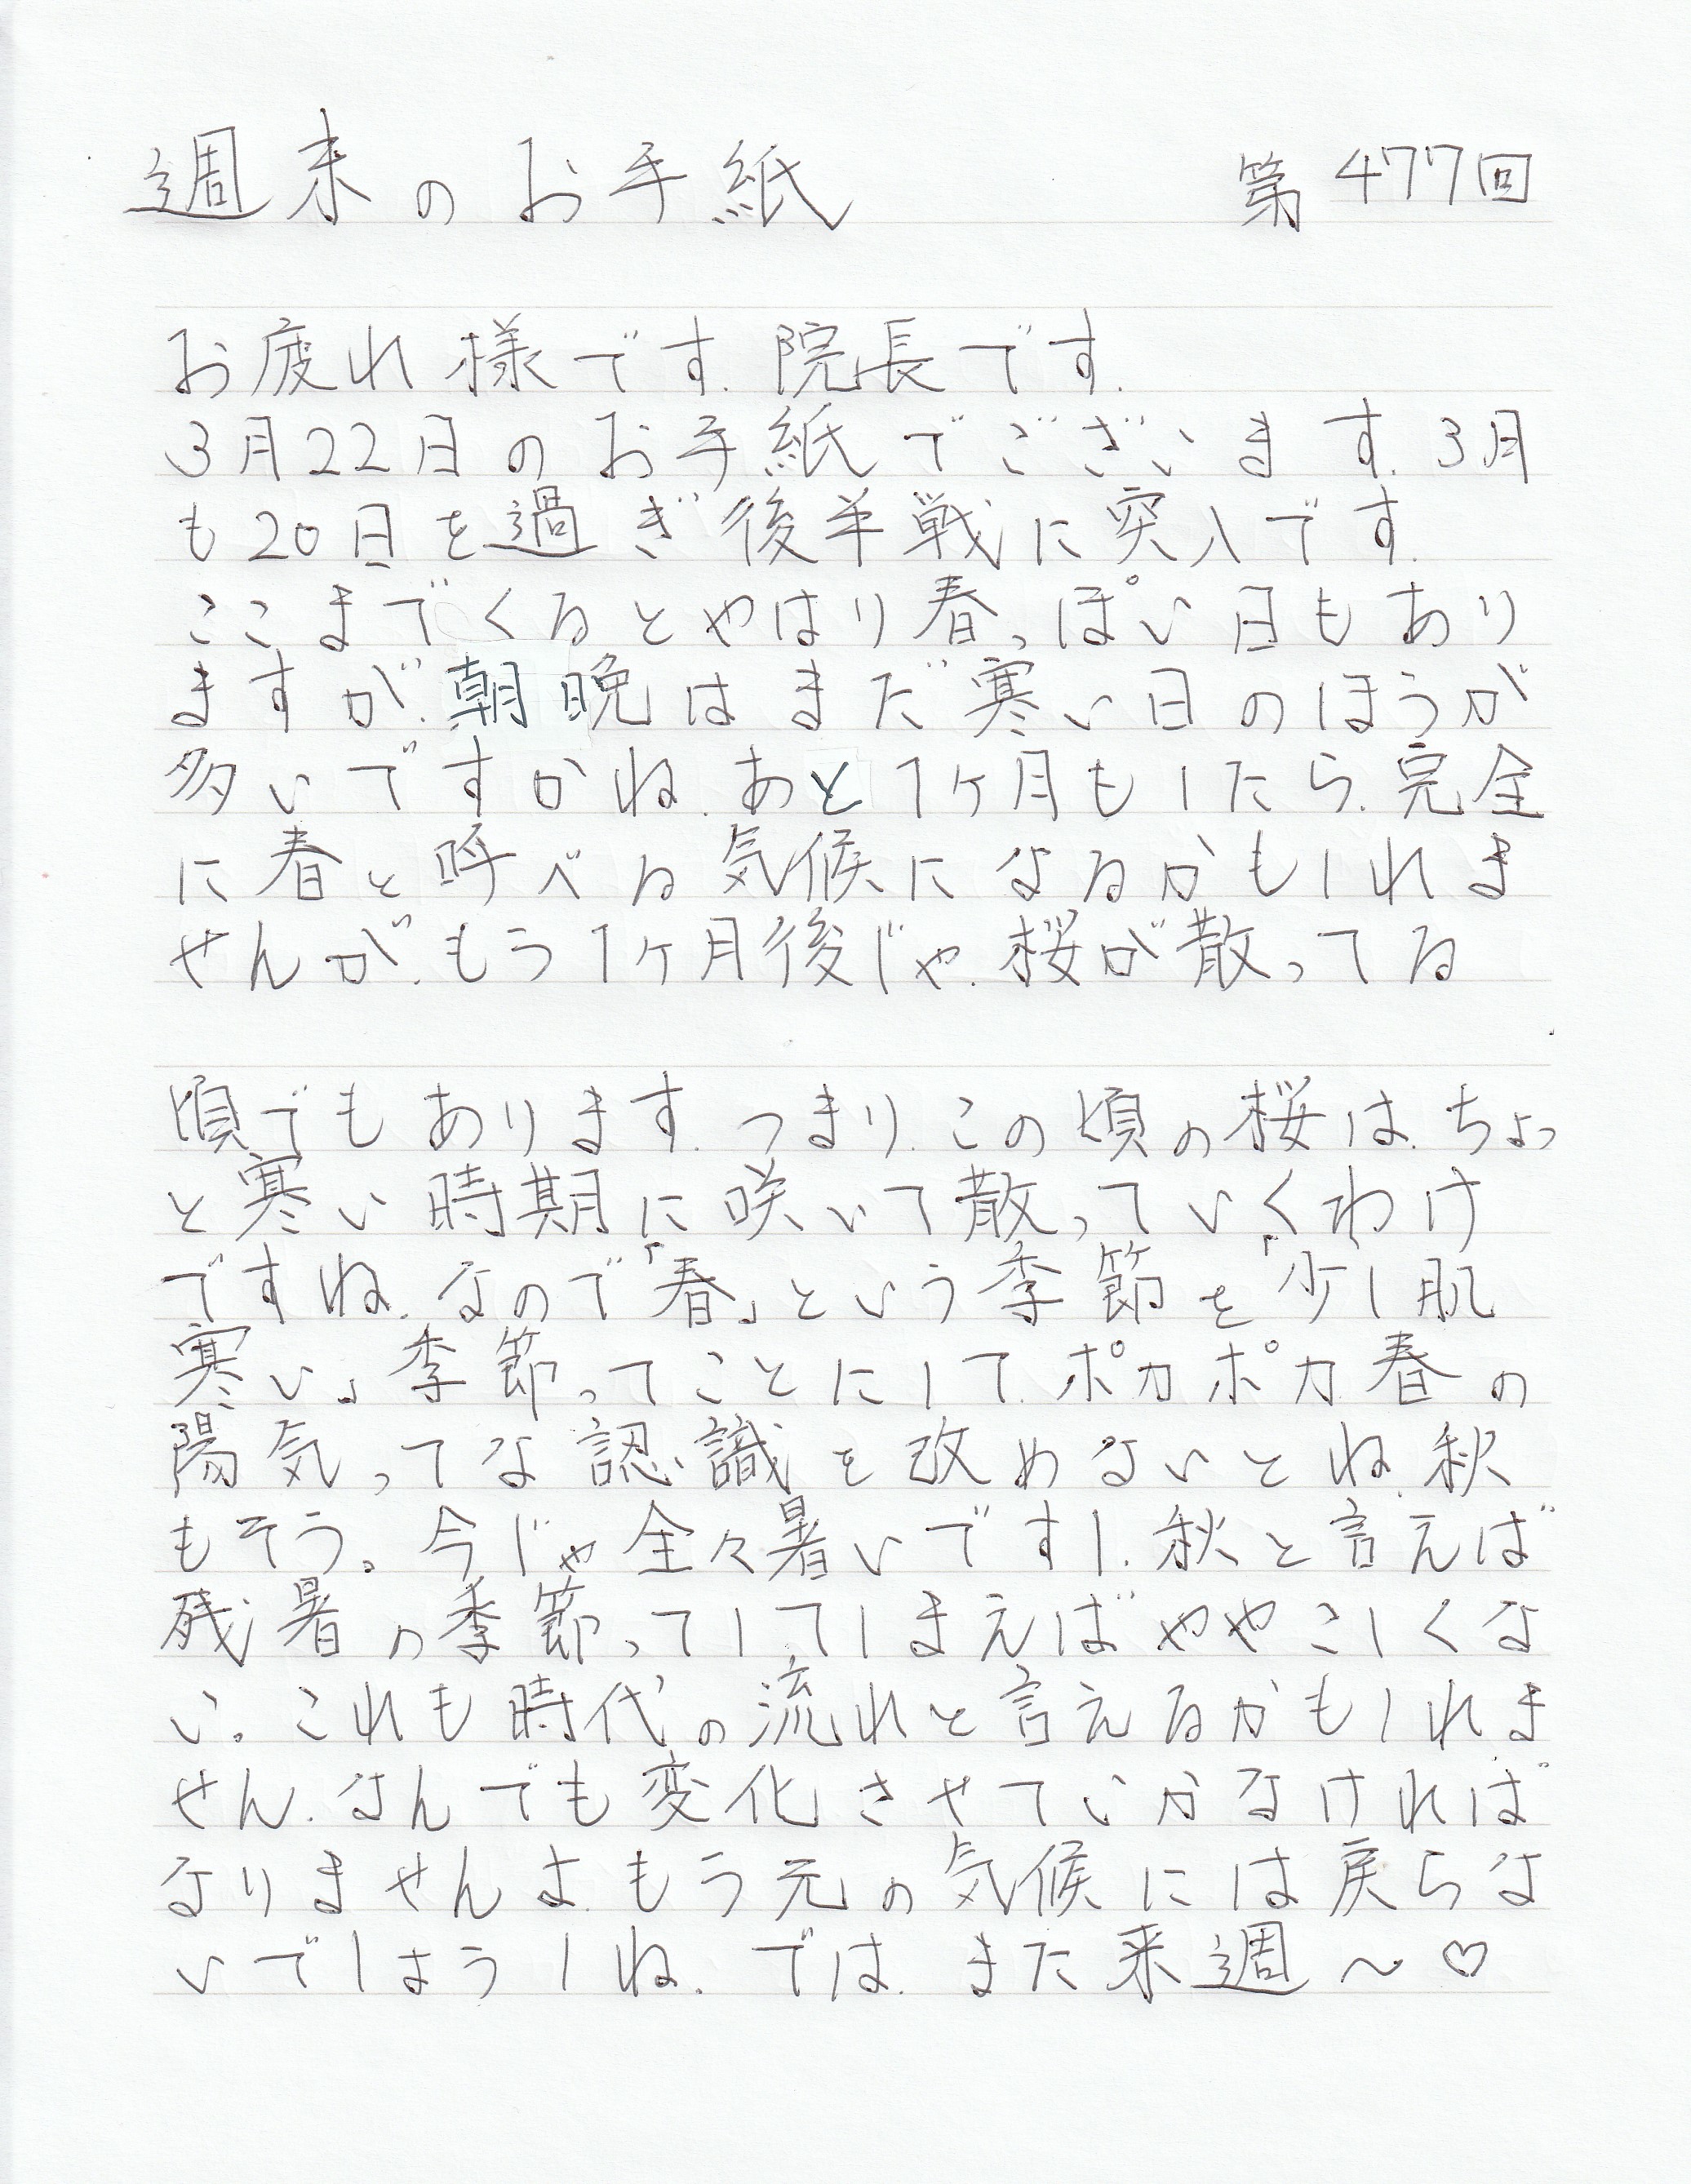 週末のお手紙 第477回
お疲れ様です.院長です.
3月22日のお手紙でございます.3月
も20日を過ぎ後半戦に突入です.
ここまでくるとやはり春っぽい日もあり
ますが.朝晩はまだ寒い日のほうが
多いですかね.あと1ヶ月もしたら.完全
に春と呼べる気候になるかもしれま
せんが.もう1ヶ月後じゃ.桜が散ってる
頃でもあります.つまり.この頃の桜は.ちょっ
と寒い時期に咲いて散っていくわけ
ですね.なので「春」という季節を「少し肌
寒い」季節ってことにして.ポカポカ春の
陽気ってな認識を改めないとね.秋
もそう。今じゃ全々暑いですし.秋と言えば
残暑の季節ってしてしまえばややこしくな
い。これも時代の流れと言えるかもしれま
せん.なんでも変化させていかなければ
なりませんよ.もう元の気候には戻らな
いでしょうしね.では.また来週～♡